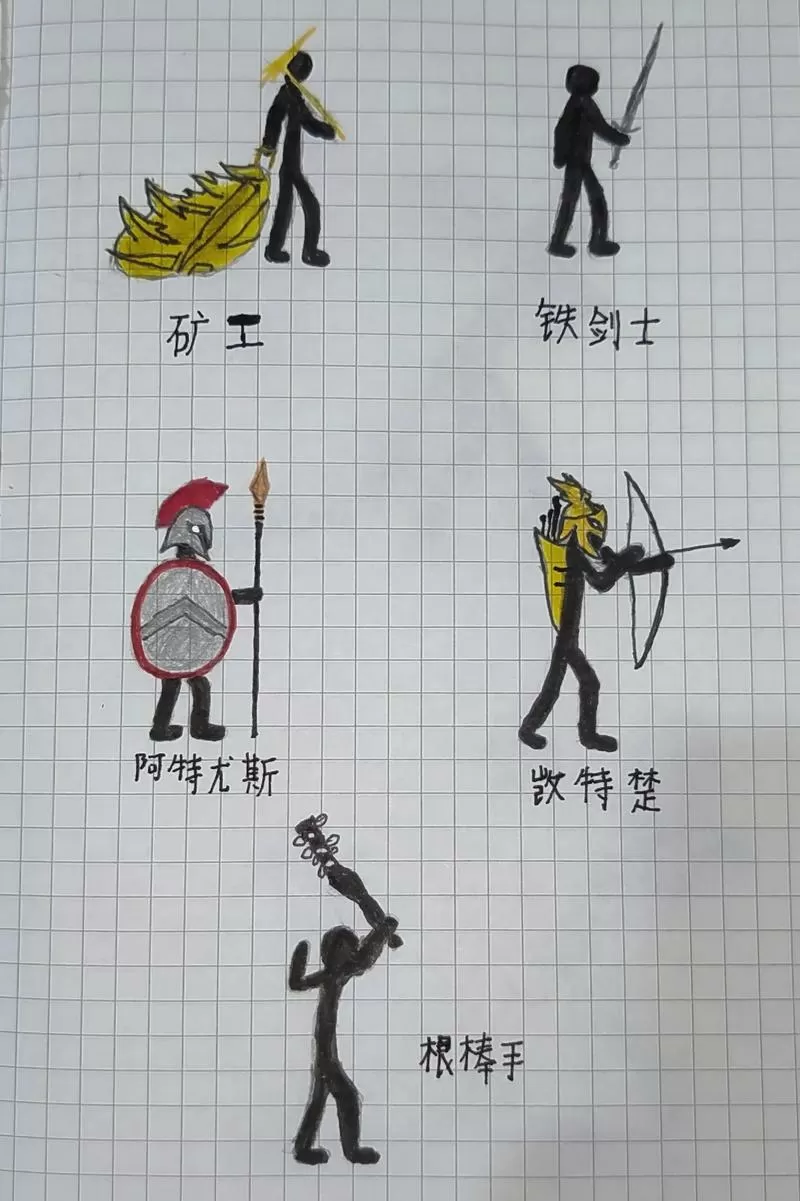 矿工
铁剑士
阿特尤斯
凯特楚
根棒手